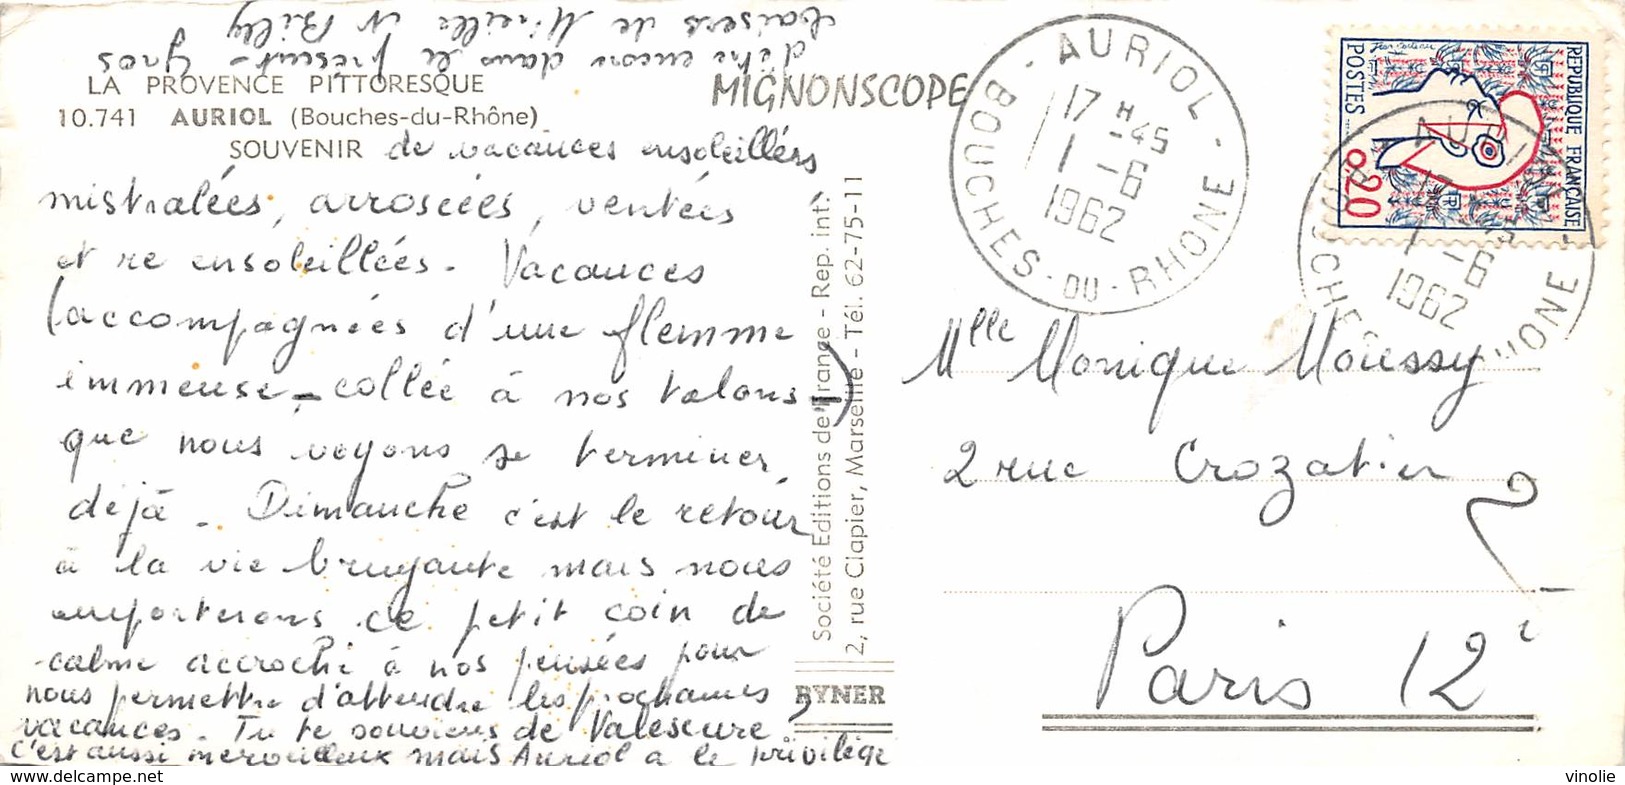 LA PROVENCE PITTORESQUE
10.741 AURIOL (Bouches-du-Rhône)
SOUVENIR de vacances ensoleillées
mistralées, arrosées, ventées
et re ensoleillées. Vacances
(accompagnées d'une flemme
immense, collée à nos talons)
que nous voyons se terminer
déjà. Dimanche c'est le retour
à la vie bruyante mais nous
emporterons ce petit coin de
calme accroché à nos pensées pour
nous permettre d'attendre les prochaines
vacances. Tu te souviens de Valescure,
c'est aussi merveilleux mais Auriol a le privilège
d'être encore dans le présent. Gros
baisers de Mireille et Billy
MIGNONSCOPE
Société Editions de France - Rep. int.
2, rue Clapier, Marseille - Tél. 62-75-11
RYNER
AURIOL
17 H 45
1 -6
1962
BOUCHES-DU-RHONE
REPUBLIQUE FRANÇAISE
POSTES
0,20
Jean Cocteau
AURIOL
1 -6
1962
Mlle Monique Moussy
2 rue Crozatier
Paris 12e
vinolie